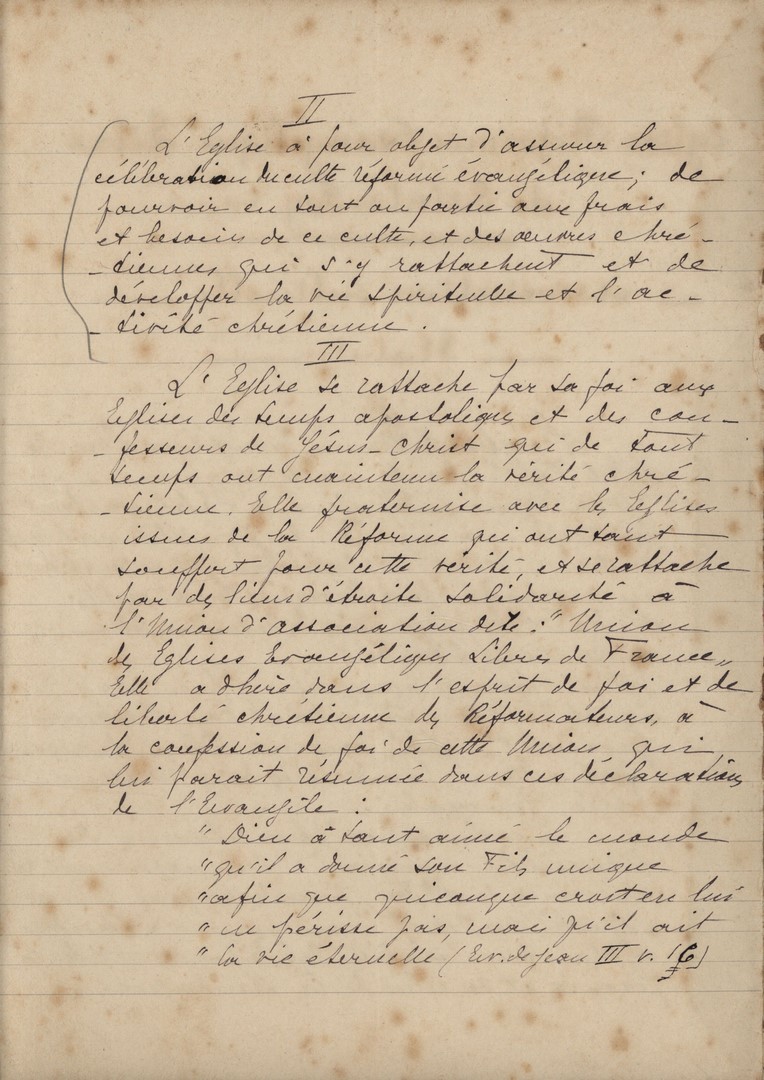 II
L'Eglise à pour objet d'assurer la
célébration du culte réformé évangélique; de
pourvoir en tout ou partie aux frais
et besoins de ce culte, et des œuvres chré-
-tiennes qui s'y rattachent et de
développer la vie spirituelle et l'ac-
-tivité chrétienne.
III
L'Eglise se rattache par sa foi aux
Eglises des temps apostoliques et des con-
-fesseurs de Jésus-Christ qui de tout
temps ont maintenu la vérité chré-
-tienne. Elle fraternise avec les Eglises
issues de la Réforme qui ont tant
souffert pour cette vérité, et se rattache
par des liens d'étroite solidarité à
l'Union d'association dite: "Union
des Eglises Evangéliques Libres de France„
Elle adhère dans l'esprit de foi et de
liberté chrétienne des Réformateurs, à
la confession de foi de cette Union qui
lui parait résumée dans ces déclarations
de l'Evangile :
" Dieu à tant aimé le monde
" qu'il a donné son Fils unique
" afin que quiconque croit en lui
" ne périsse pas, mais qu'il ait
" la vie éternelle (Ev. de Jean III v. 16)